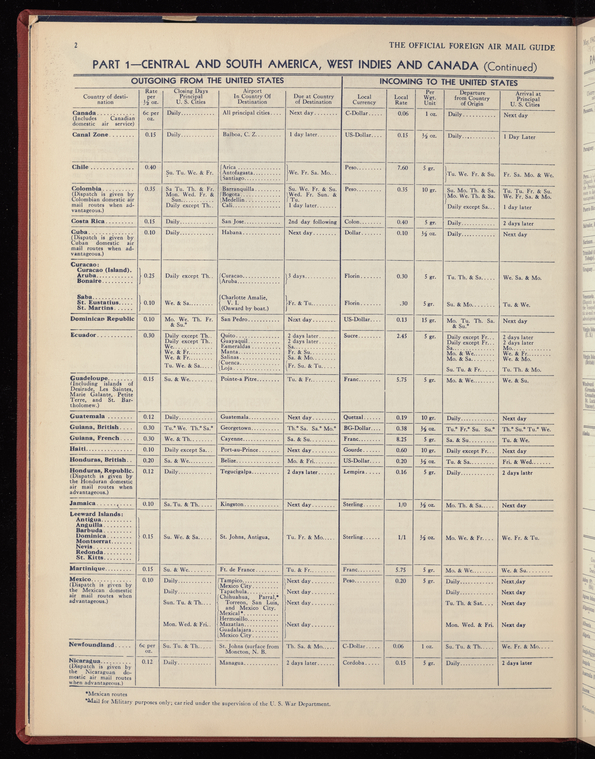 2 THE OFFICIAL FOREIGN AIR MAIL GUIDE
PART 1—CENTRAL AND SOUTH AMERICA, WEST INDIES AND CANADA (Continued)
OUTGOING FROM THE UNITED STATES INCOMING TO THE UNITED STATES
Country of destination Rate per ½ oz. Closing Days Principal U. S. Cities Airport In Country Of Destination Due at Country of Destination Local Currency Local Rate Per Wgt. Unit Departure from Country of Origin Arrival at Principal U. S. Cities
Canada 6c per oz. Daily All principal cities Next day C-Dollar 0.06 1 oz. Daily Next day
(Includes Canadian
domestic air service)
Canal Zone 0.15 Daily Balboa, C. Z. 1 day later US-Dollar 0.15 ½ oz. Daily 1 Day Later
Chile 0.40 Su. Tu. We. & Fr. Arica We. Fr. Sa. Mo. Peso 7.60 5 gr. Tu. We. Fr. & Su. Fr. Sa. Mo. & We.
Antofagasta
Santiago
Colombia 0.35 Sa Tu. Th. & Fr. Barranquilla Su. We. Fr. & Su. Peso 0.35 10 gr. Su. Mo. Th. & Sa. Tu. Tu. Fr. & Su.
(Dispatch is given by Mon. Wed. Fr. & Sun. Bogota Wed. Fr. Sun. & Tu. Mo. We. Th. & Su. We. Fr. Sa. & Mo.
Colombian domestic air Medellin
mail routes when ad- Daily except Th. Cali 1 day later Daily except Sa. 1 day later
vantageous.)
Costa Rica 0.15 Daily San Jose 2nd day following Colon 0.40 5 gr. Daily 2 days later
Cuba 0.10 Daily Habana Next day Dollar 0.10 ½ oz. Daily Next day
(Dispatch is given by
Cuban domestic air
mail routes when ad-
vantageous.)
Curacao:
Curacao (Island).
Aruba 0.25 Daily except Th. Curacao 3 days Florin 0.30 5 gr. Tu. Th. & Sa. We. Sa. & Mo.
Bonaire Aruba
Saba Charlotte Amalie,
St. Eustatius 0.10 We. & Sa. V. I. Fr. & Tu. Florin .30 5 gr. Su. & Mo. Tu. & We.
St. Martins (Onward by boat.)
Dominican Republic 0.10 Mo. We. Th. Fr. & Su.* San Pedro Next day US-Dollar 0.15 15 gr. Mo. Tu. Th. Sa. & Su.* Next day
Ecuador 0.30 Daily except Th. Quito 2 days later Sucre 2.45 5 gr. Daily except Fr. 2 days later
Daily except Th. Guayaquil 2 days later Daily except Fr. 2 days later
We. Esmeraldas Sa. Sa. Mo.
We. & Fr. Manta Fr. & Su. Mo. & We. We. & Fr.
We. & Fr. Salinas Sa. & Mo. Mo. & Sa. We. & Mo.
Tu. We. & Sa. Cuenca Fr. Su. & Tu. Su. Tu. & Fr. Tu. Th. & Mo.
Loja
Guadeloupe 0.15 Su. & We. Pointe-a Pitre Tu. & Fr. Franc 5.75 5 gr. Mo. & We. We. & Su.
(Including islands of
Desirade, Les Saintes,
Marie Galante, Petite
Terre, and St. Bar-
tholomew.)
Guatemala 0.12 Daily Guatemala Next day Quetzal 0.19 10 gr. Daily Next day
Guiana, British 0.30 Tu.* We. Th.* Sa.* Georgetown Th.* Sa. Sa.* Mo.* BG-Dollar 0.38 ½ oz. Tu.* Fr.* Su. Su.* Th.* Su.* Tu.* We.
Guiana, French 0.30 We. & Th. Cayenne Sa. & Su. Franc 8.25 5 gr. Sa. & Su. Tu. & We.
Haiti 0.10 Daily except Sa. Port-au-Prince Next day Gourde 0.60 10 gr. Daily except Fr. Next day
Honduras, British 0.20 Sa. & We. Belize Mo. & Fri. US-Dollar 0.20 ½ oz. Tu. & Sa. Fri. & Wed.
Honduras, Republic. 0.12 Daily Tegucigalpa 2 days later Lempira 0.16 5 gr. Daily 2 days later
(Dispatch is given by
the Honduran domestic
air mail routes when
advantageous.)
Jamaica 0.10 Sa. Tu. & Th. Kingston Next day Sterling 1/0 ½ oz. Mo. Th. & Sa. Next day
Leeward Islands:
Antigua
Anguilla
Barbuda
Dominica 0.15 Su. We. & Sa. St. Johns, Antigua, Tu. Fr. & Mo. Sterling 1/1 ½ oz. Mo. We. & Fr. We. Fr. & Tu.
Montserrat
Nevis
Redonda
St. Kitts
Martinique 0.15 Su. & We. Ft. de France Tu. & Fr. Franc 5.75 5 gr. Mo. & We. We. & Su.
Mexico 0.10 Daily Tampico Next day Peso 0.20 5 gr. Daily Next day
(Dispatch is given by Mexico City
the Mexican domestic Daily Tapachula Next day Daily Next day
air mail routes when Sun. Tu. & Th. Chihuahua, Parral,* Next day Tu. Th. & Sat. Next day
advantageous.) Torreon, San Luis,
and Mexico City.
Mexicali*
Hermosillo
Mon. Wed. & Fri. Mazatlan Next day Mon. Wed. & Fri. Next day
Guadalajara
Mexico City
Newfoundland 6c per oz. Su. Tu. & Th. St. Johns (surface from Moncton, N. B. Th. Sa. & Mo. C-Dollar 0.06 1 oz. Su. Tu. & Th. We. Fr. & Mo.
Nicaragua 0.12 Daily Managua 2 days later Cordoba 0.15 5 gr. Daily 2 days later
(Dispatch is given by
the Nicaraguan do-
mestic air mail routes
when advantageous.)
*Mexican routes
*Mail for Military purposes only; carried under the supervision of the U. S. War Department.